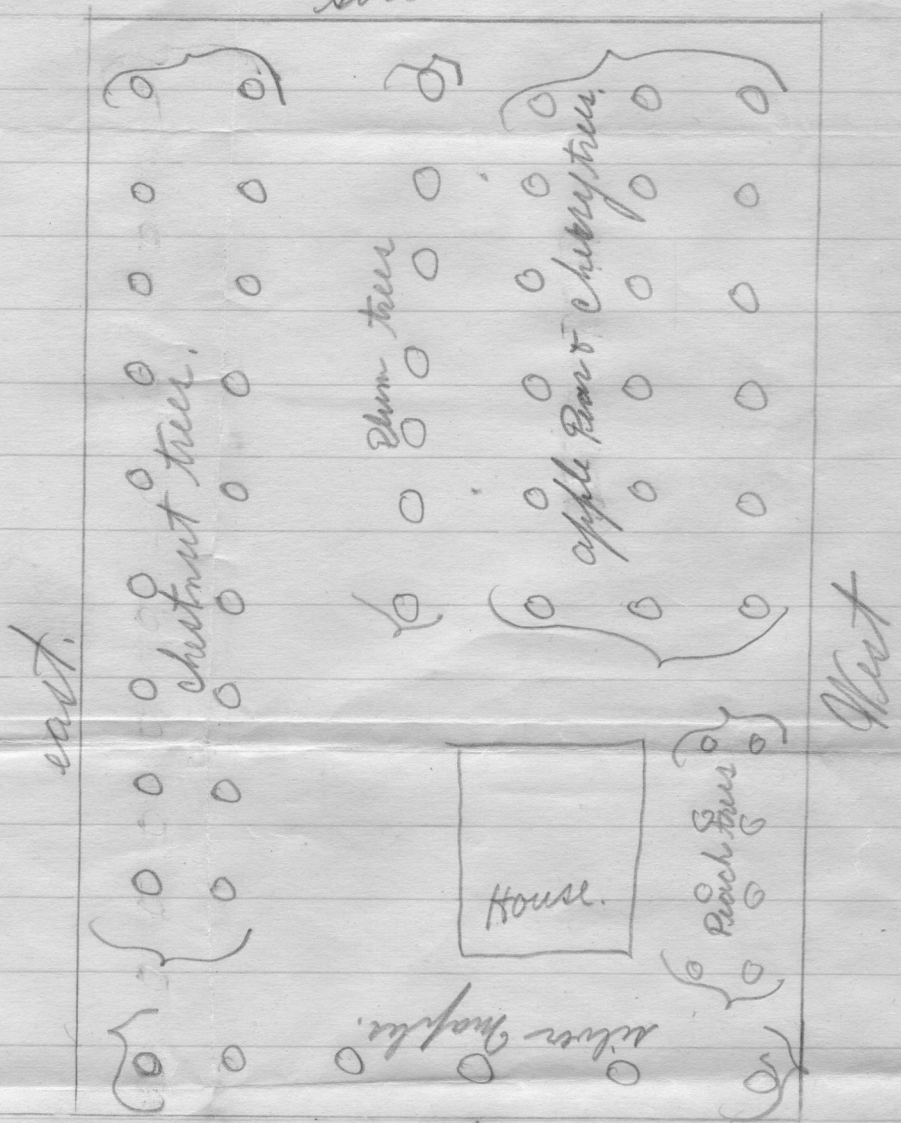 east.
chestnut trees.
Plum trees
apple Pear & cherry trees.
West
House.
Peach trees
silver maples.